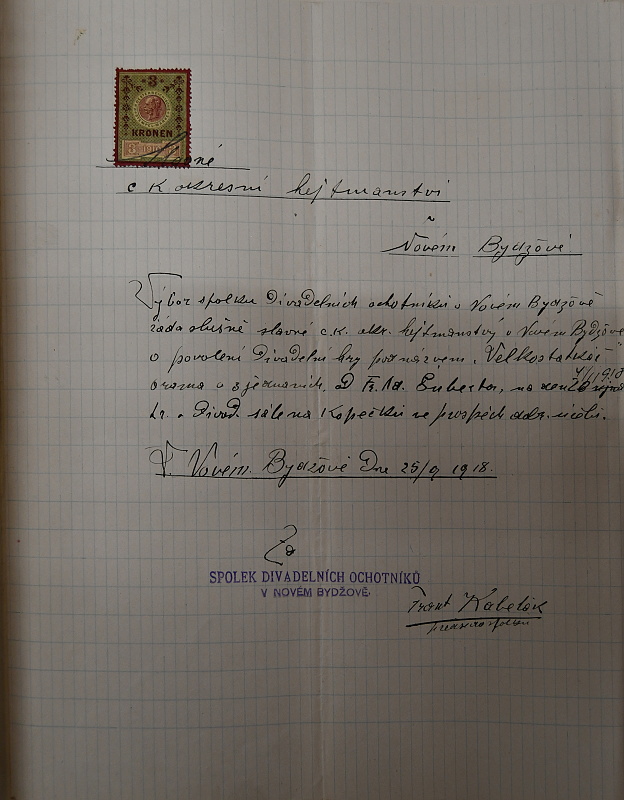 3
KRONEN
Slavné
c k okresní hejtmanství
v
Novém Bydžově
Výbor spolku Divadelních ochotníků v Novém Bydžově
žádá slušně slavné c.k. okr. hejtmanství v Novém Bydžově
o povolení Divadelní hry pod názvem „Velkostatkář"
drama v 3 jednáních, D Fr. Ad. Šuberta, na den
t.r. v Divad. sále na Kopečku ve prospěch
V. Novém Bydžově Dne 25/9 1918.
Za
SPOLEK DIVADELNÍCH OCHOTNÍKŮ
V NOVÉM BYDŽOVĚ
Frant Kabelák
předseda spolku